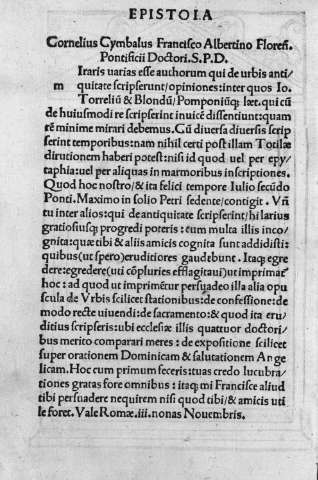 EPISTOLA
Cornelius Cymbalus Francisco Albertino Floreñ.
Pontificii Doctori.S.P.D.
Iraris uarias esse authorum qui de urbis anti/
m quitate scripserunt/opiniones:inter quos Io.
Torreliū & Blondū/Pomponiūq; læt. qui cū
de huiusmodi re scripserint inuicē dissentiunt:quam
rē minime mirari debemus. Cū diuersa diuersis scrip
serint temporibus:nam nihil certi post illam Totilæ
dirutionem haberi potest:nisi id quod uel per epy/
taphia:uel per aliquas in marmoribus inscriptiones.
Quod hoc nostro/& ita felici tempore Iulio secūdo
Ponti. Maximo in solio Petri sedente/contigit. Vñ
tu inter alios:qui de antiquitate scripserint/hilarius
gratiosiusq; progredi poteris:cum multa illis inco/
gnita:quæ tibi & aliis amicis cognita sunt addidisti:
quibus(ut spero)eruditores gaudebunt. Itaq; egre
dere:egredere(uti cōplures efflagitaui)ut imprimat
hoc: ad quod ut imprimētur persuadeo illa alia opu
scula de Vrbis scilicet stationibus:de confessione:de
modo recte uiuendi:de sacramento:& quod ita eru/
ditius scripseris:ubi ecclesiæ illis quattuor doctori/
bus merito comparari meres: de expositione scilicet
super orationem Dominicam & salutationem Ange
licam. Hoc cum primum feceris:tuas credo lucubra/
tiones gratas fore omnibus : itaq; mi Francisce aliud
tibi persuadere nequirem nisi quod tibi/& amicis uti
le foret. Vale Romæ.iii.nonas Nouembris.